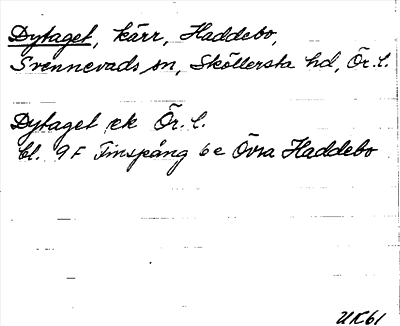 Dytaget, kärr, Haddebo,
Svennevads sn, Sköllersta hd, Ör. l.
Dytaget ek Ör. l.
bl. 9F Finspång 6e Övra Haddebo
UK61